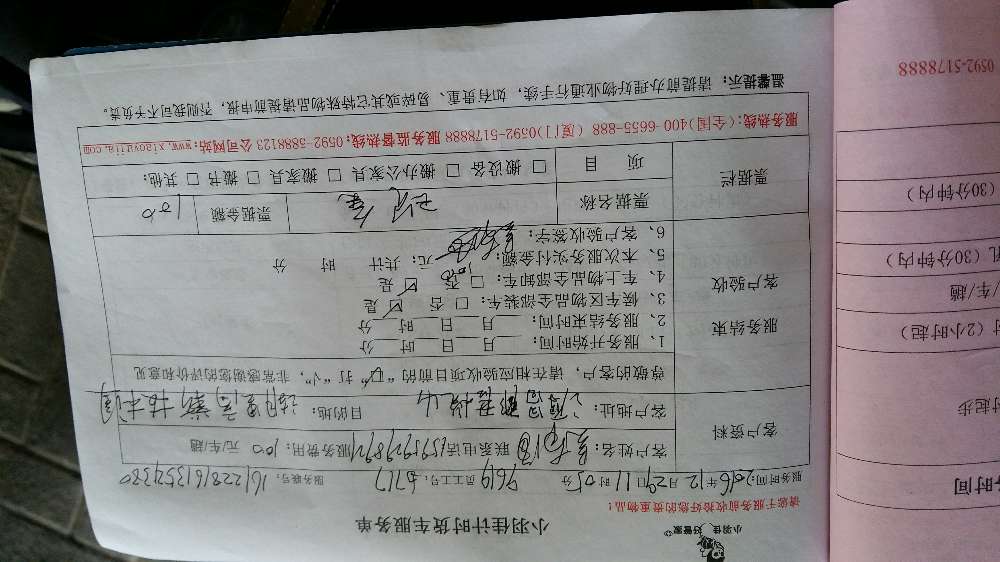 小羽佳 好管家
小羽佳计时货车服务单
请您于服务前收拾好您的贵重物品！
服务时间：2016年12月29日11时05分 7619 员工工号：6717 服务联号：161228161354380
客户资料
客户姓名： 联系电话：15959298921 服务费用：100 元/车/趟
客户地址： 目的地：
服务结束
客户验收
尊敬的客户，请在相应验收项目前的“□”打“√”，非常感谢您的评价和意见
1、服务开始时间：___月___日___时___分
2、服务结束时间：___月___日___时___分
3、候车区物品全部装车：□ 否 ☑ 是
4、车上物品全部卸车：□ 否 ☑ 是
5、本次服务实付金额： 元；共计 时 分
6、客户验收签字：
票据栏
票据名称 票据金额 100
项 目 □ 搬设备 □ 搬办公家具 □ 搬家具 □ 搬书 □ 其他：
服务热线：(全国)400-6655-888 (厦门)0592-5178888 服务监督热线：0592-5888123 公司网站：www.xiaoyujia.com
温馨提示：请提前办理好物业通行手续，如有贵重、易碎或其它特殊物品请提前申报，否则我司不予负责。
时间
时起步
时（2小时起）
/车/趟
（30分钟内）
（30分钟内）
0592-5178888